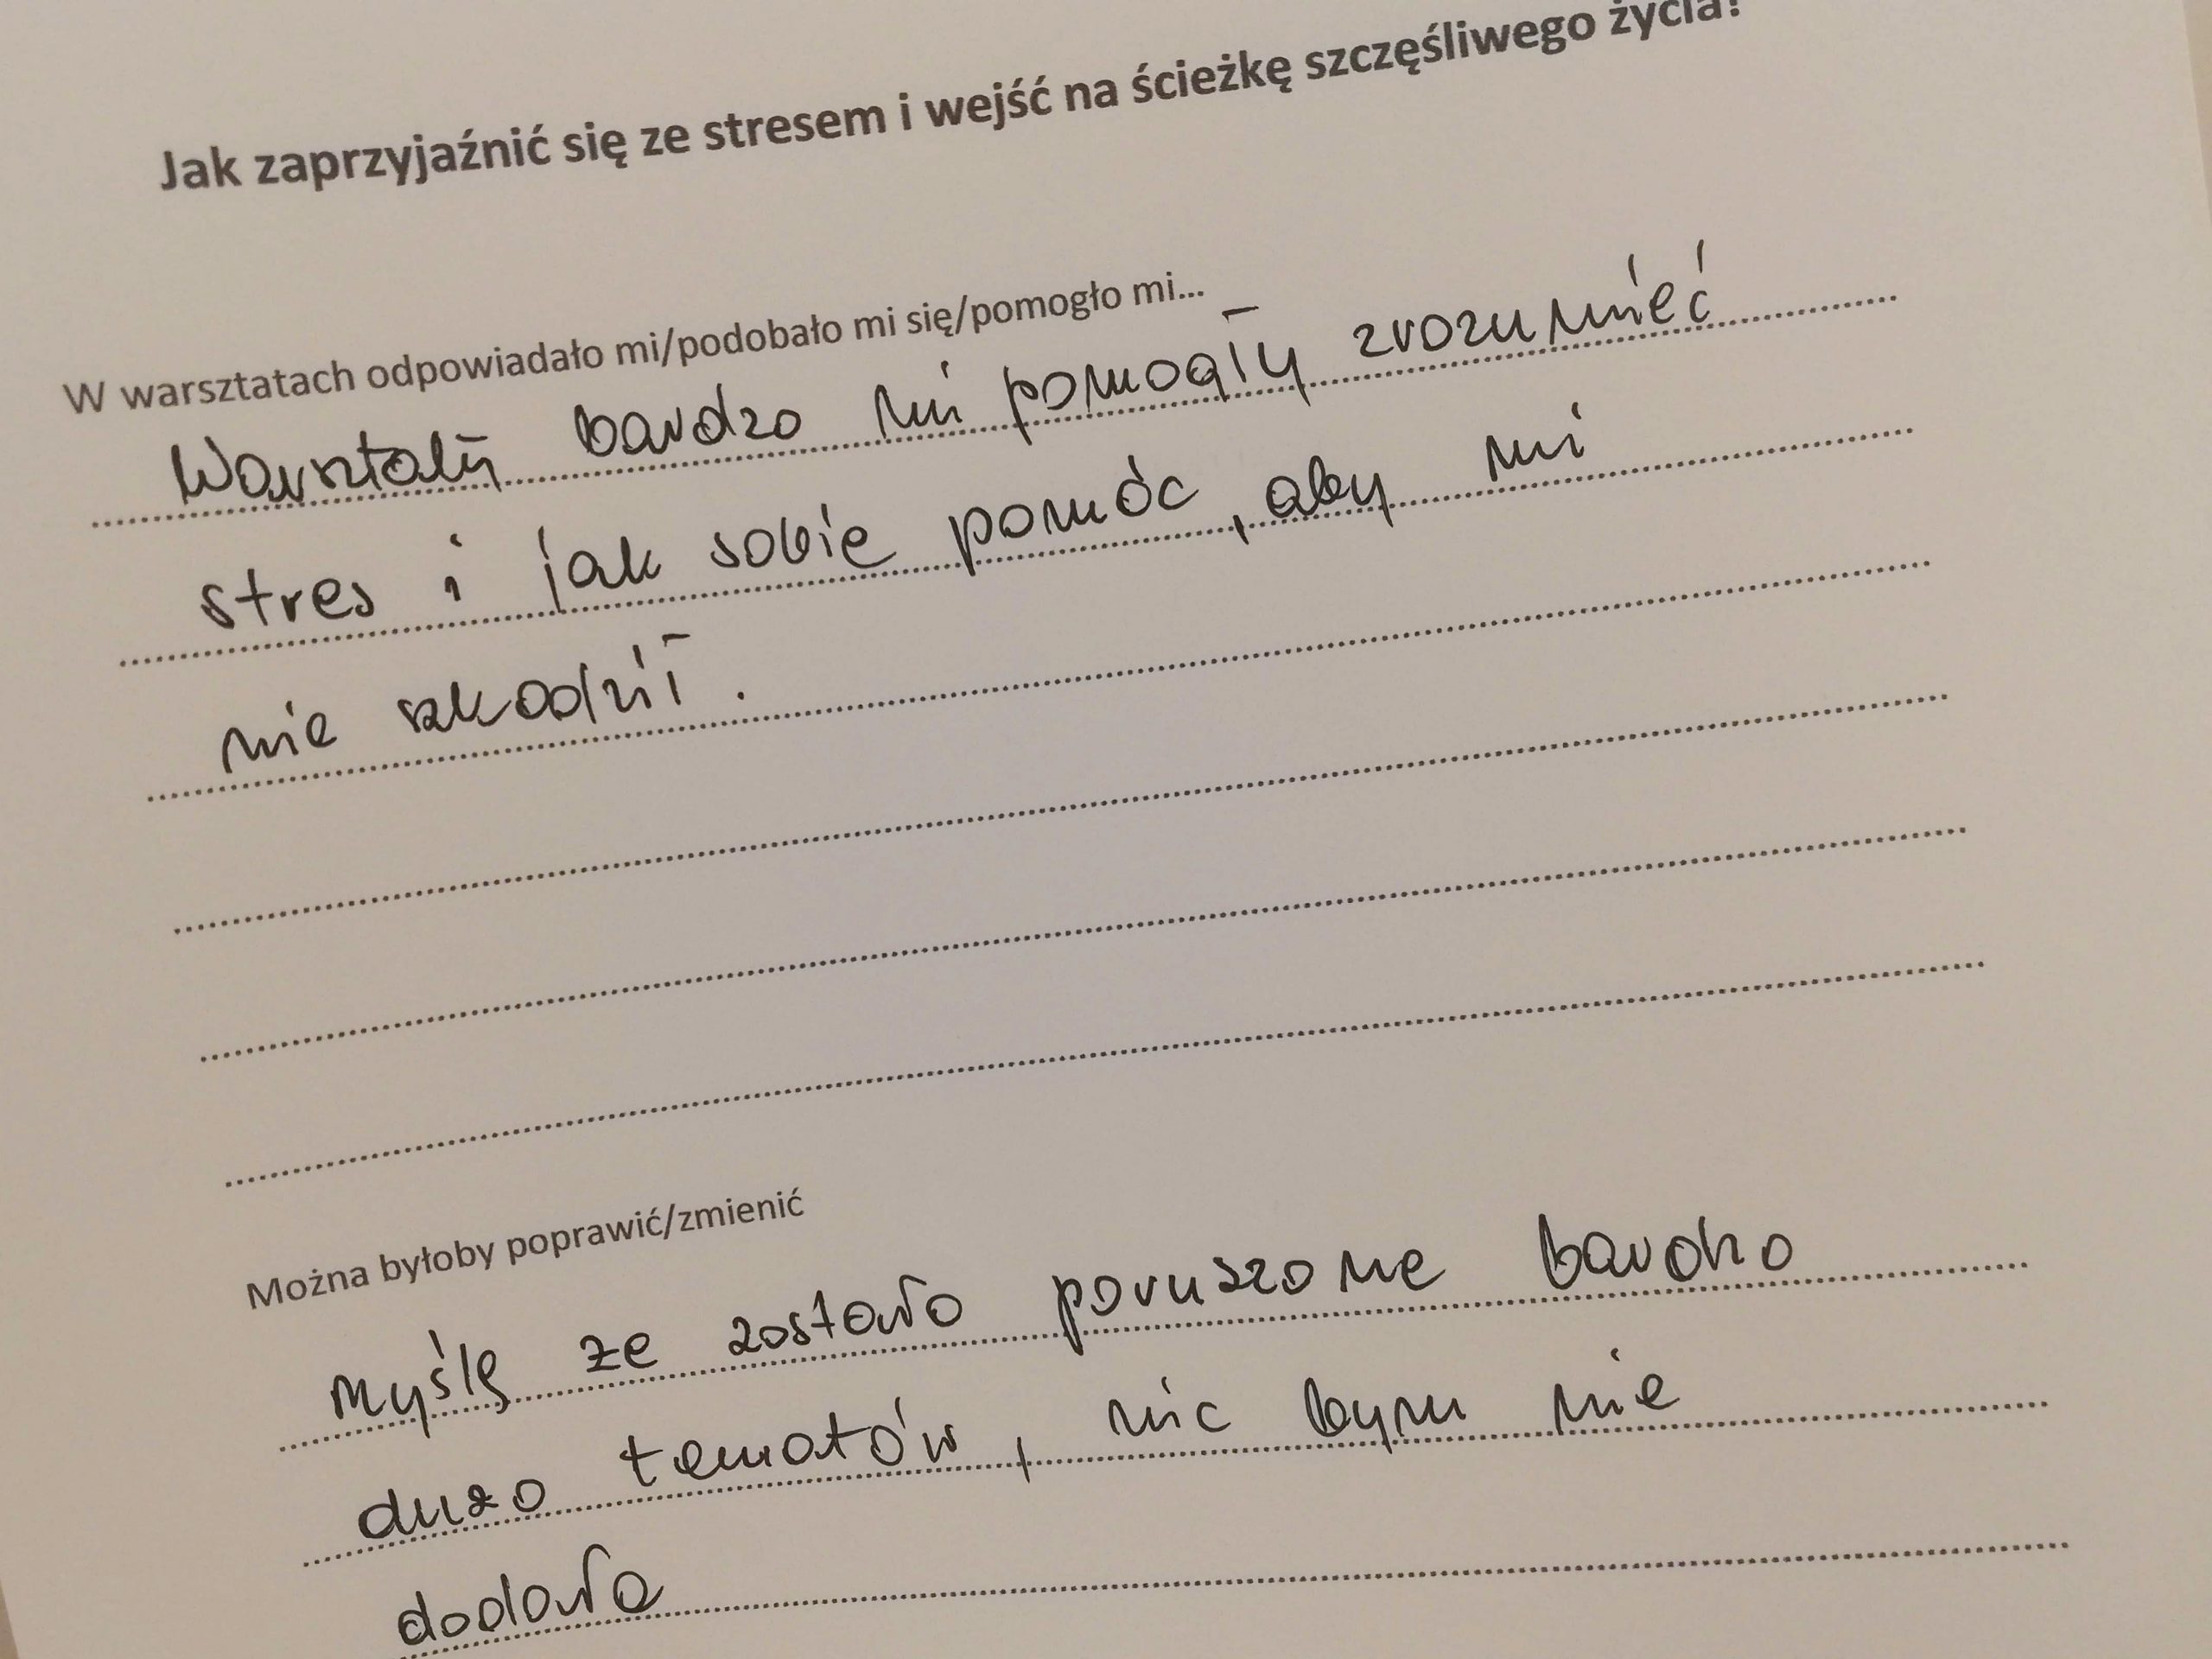 Jak zaprzyjaźnić się ze stresem i wejść na ścieżkę szczęśliwego życia?
W warsztatach odpowiadało mi/podobało mi się/pomogło mi...
Warsztaty bardzo mi pomogły zrozumieć
stres i jak sobie pomóc, aby mi
nie szkodził.
Można byłoby poprawić/zmienić
Myślę że zostało poruszone bardzo
dużo tematów, nic bym nie
dodała